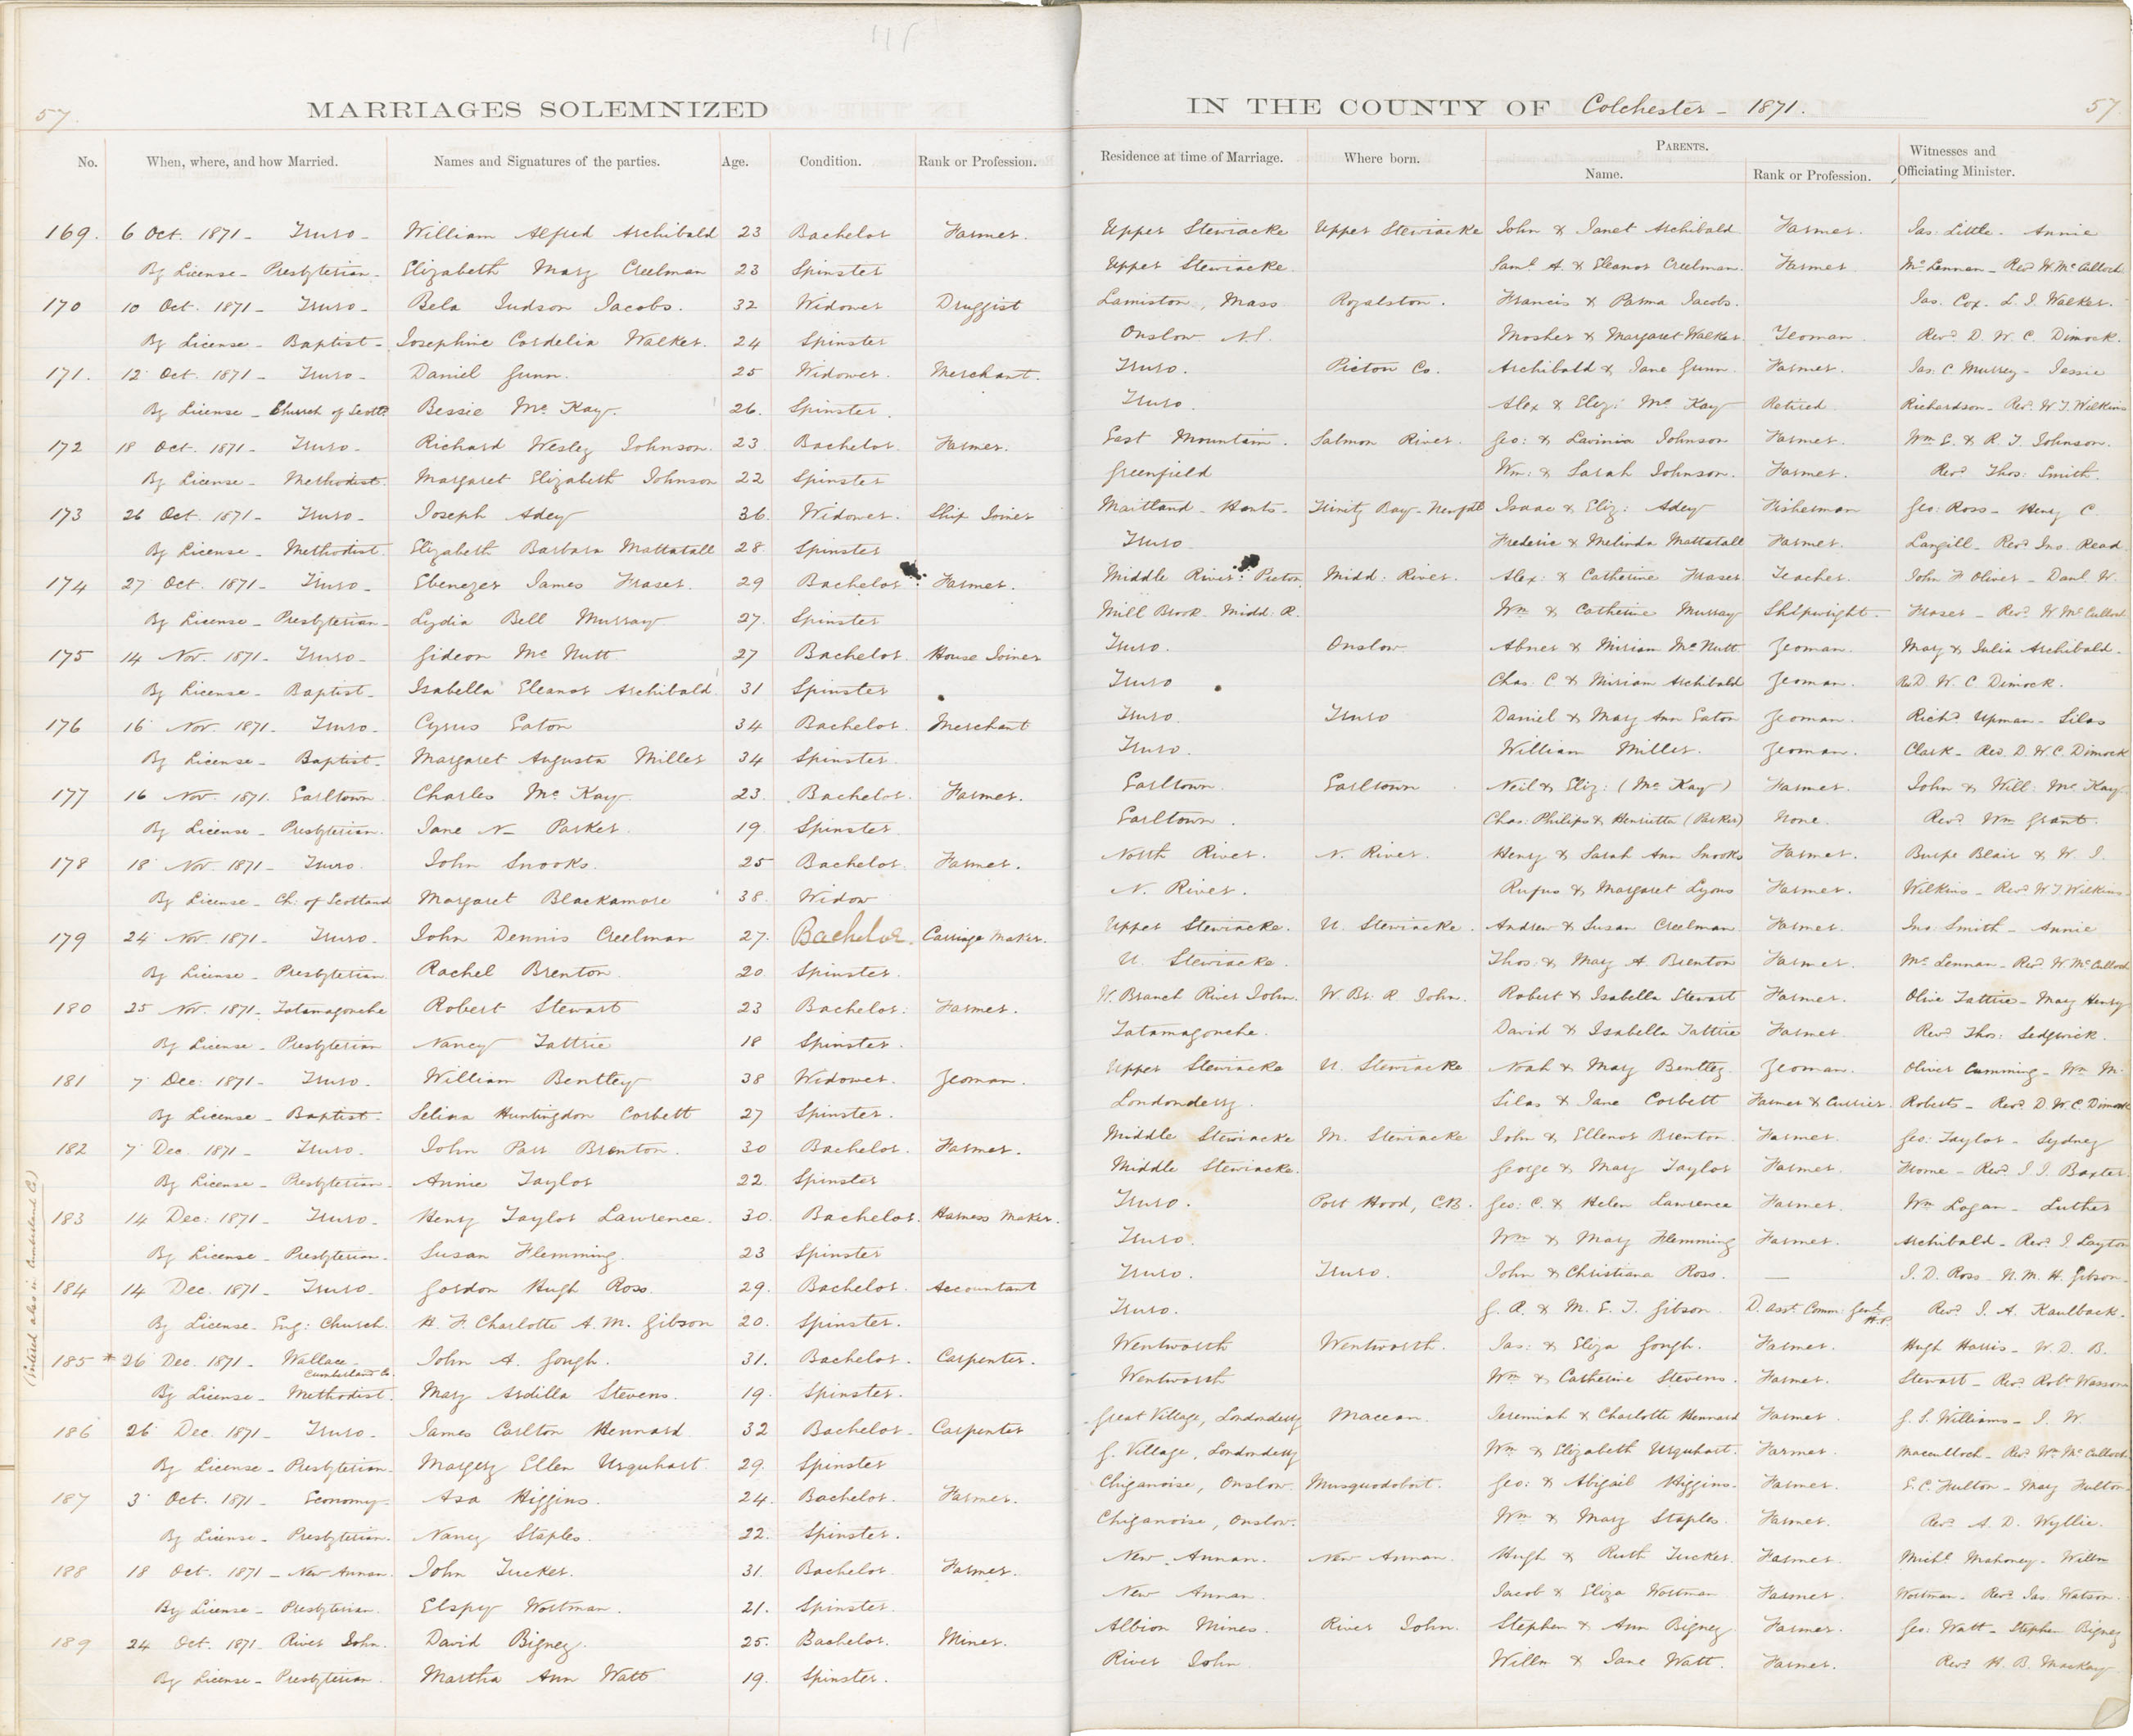 57.
MARRIAGES SOLEMNIZED IN THE COUNTY OF Colchester - 1871. 57
No. When, where, and how Married. Names and Signatures of the parties. Age. Condition. Rank or Profession. Residence at time of Marriage. Where born. PARENTS. Name. Rank or Profession. Witnesses and Officiating Minister.
169. 6 Oct. 1871 - Truro - William Alfred Archibald 23 Bachelor Farmer. Upper Stewiacke Upper Stewiacke John & Janet Archibald Farmer. Jas. Little - Annie
By License - Presbyterian - Elizabeth Mary Creelman 23 Spinster Upper Stewiacke. Saml. A. & Eleanor Creelman. Farmer McLennan - Revd W. McCulloch
170 10 Oct. 1871 - Truro - Bela Judson Jacobs. 32 Widower Druggist Mass Royalston. Francis & Parma Jacobs. Jas. Cox - L. J. Walker.
By License - Baptist - Josephine Cordelia Walker. 24 Spinster Onslow N.S. Mosher & Margaret Walker Yeoman. Revd D. W. C. Dimock.
171. 12 Oct. 1871 - Truro - Daniel Gunn. 25 Widower. Merchant. Truro. Pictou Co. Archibald & Jane Gunn. Farmer. Jas. C. Murray - Jessie
By License - Church of Scotld Bessie McKay. 26. Spinster. Truro. Alex & Eliz: McKay Retired Richardson - Revd W. J. Wilkins
172 18 Oct. 1871 - Truro - Richard Wesley Johnson. 23 Bachelor. Farmer. East Mountain. Salmon River. Geo: & Lavinia Johnson Farmer. Wm E. & R. J. Johnson.
By License - Methodist. Margaret Elizabeth Johnson 22 Spinster Greenfield Wm: & Sarah Johnson. Farmer. Revd Thos: Smith.
173 26 Oct. 1871 - Truro - Joseph Adey 36. Widower. Ship Joiner Maitland - Hants - Trinity Bay - Newfdl Isaac & Eliz: Adey Fisherman Geo: Ross - Henry C.
By License - Methodist. Elizabeth Barbara Mattatall 28 Spinster Truro. Frederic & Melinda Mattatall Farmer. Langill - Revd Jno. Read
174 27 Oct. 1871 - Truro - Ebenezer James Fraser. 29 Bachelor. Farmer. Middle River: Pictou Midd: River. Alex: & Catherine Fraser Teacher. John F Oliver - Danl. W.
By License - Presbyterian - Lydia Bell Murray 27. Spinster Mill Brook. Midd: R. Wm & Catherine Murray Shipwright - Fraser - Revd W. McCulloch
175 14 Nov. 1871 - Truro - Gideon McNutt 27 Bachelor. House Joiner Truro. Onslow Abner & Miriam McNutt Yeoman. Mary & Julia Archibald -
By License - Baptist - Isabella Eleanor Archibald. 31 Spinster Truro Chas. C. & Miriam Archibald Yeoman. Rev D. W. C. Dimock.
176 16 Nov. 1871 - Truro. Cyrus Eaton 34 Bachelor. Merchant Truro. Truro Daniel & Mary Ann Eaton Yeoman. Richd Upman - Silas
By License - Baptist - Margaret Augusta Miller 34 Spinster Truro. William Miller. Yeoman. Clark - Rev. D. W. C. Dimock
177 16 Nov. 1871. Earltown Charles McKay 23. Bachelor. Farmer. Earltown Earltown Neil & Eliz: (McKay) Farmer. John & Will. McKay
By License - Presbyterian. Jane N - Parker. 19. Spinster. Earltown. Chas: Philips & Henrietta (Parker) None. Revd Wm Grant.
178 18 Nov. 1871 - Truro. John Snooks. 25 Bachelor. Farmer. North River. N. River. Henry & Sarah Ann Snooks Farmer. Burpe Blair & W. J.
By License - Ch: of Scotland Margaret Blackamore 38. Widow N. River. Rufus & Margaret Lyons Farmer. Wilkins - Revd W J Wilkins
179 24 Nov. 1871 - Truro. John Dennis Creelman 27. Bachelor. Carriage Maker. Upper Stewiacke. U. Stewiacke. Andrew & Susan Creelman Farmer. Jno Smith - Annie
By License - Presbyterian Rachel Brenton. 20 Spinster. U. Stewiacke. Thos. & Mary A. Brenton Farmer. McLennan - Revd W. McCulloch
180 25 Nov. 1871 - Tatamagouche Robert Stewart 23 Bachelor: Farmer. W. Branch River John. W. Br. R. John. Robert & Isabella Stewart Farmer. Olive Tattrie - May Henry
By License - Presbyterian Nancy Tattrie 18 Spinster. Tatamagouche. David & Isabella Tattrie Farmer. Revd Thos: Sedgwick.
181 7 Dec: 1871 - Truro. William Bentley 38 Widower. Yeoman. Upper Stewiacke U. Stewiacke Noah & Mary Bentley. Yeoman. Oliver Cumming - Wm M.
By License - Baptist. Selina Huntingdon Corbett 27 Spinster. Londonderry. Silas & Jane Corbett Farmer & Currier. Roberts - Revd D. W. C. Dimock
182 7 Dec. 1871 - Truro. John Parr Brenton. 30 Bachelor. Farmer. Middle Stewiacke M. Stewiacke John & Ellenor Brenton Farmer. Geo: Taylor - Sydney
By License - Presbyterian - Annie Taylor 22 Spinster Middle Stewiacke. George & Mary Taylor Farmer. Frome - Revd J. I. Baxter.
183 14 Dec: 1871 - Truro - Henry Taylor Lawrence. 30. Bachelor. Harness Maker. Truro. Port Hood, C.B. Geo: C. & Helen Lawrence Farmer. Wm Logan - Luther
By License - Presbyterian - Susan Flemming. 23 Spinster Truro. Wm & Mary Flemming Farmer. Archibald - Revd J. Layton
184 14 Dec. 1871 - Truro - Gordon Hugh Ross. 29. Bachelor. Accountant Truro. Truro. John & Christiana Ross. — J. D. Ross - N. M. H. Gibson -
By License - Eng: Church. H. F. Charlotte A. M. Gibson 20. Spinster. Truro. G. R. & M. E. J. Gibson D. Asst. Comm: Genl. H.P. Revd J. A. Kaulback.
(Entered also in Cumberland C.)
185 * 26 Dec. 1871 - Wallace Cumberland Co. John A. Gough. 31. Bachelor. Carpenter. Wentworth Wentworth. Jas: & Eliza Gough. Farmer. Hugh Harris - W. D. B.
By License - Methodist. Mary Ardilla Stevens. 19. Spinster. Wentworth Wm & Catherine Stevens. Farmer. Stewart - Revd Robt Wasson
186 26 Dec. 1871 - Truro - James Carlton Hennard 32 Bachelor. Carpenter Great Village, Londonderry Maccan. Jeremiah & Charlotte Hennard Farmer. G. S. Williams - J. W.
By License - Presbyterian - Margery Ellen Urquhart. 29. Spinster G. Village, Londonderry Wm & Elizabeth Urquhart. Farmer. Macculloch - Revd Wm McCulloch
187 3 Oct. 1871 - Economy - Asa Higgins. 24. Bachelor. Farmer. Chiganoise, Onslow. Musquodoboit. Geo: & Abigail Higgins. Farmer. E. C. Fulton - Mary Fulton
By License - Presbyterian. Nancy Staples. 22. Spinster. Chiganoise, Onslow. Wm & Mary Staples Farmer. Revd A. D. Wyllie.
188 18 Oct. 1871 - New Annan. John Tucker. 31. Bachelor Farmer. New Annan. New Annan Hugh & Ruth Tucker. Farmer. Michl Mahoney. Willm
By License - Presbyterian. Elspy Wortman. 21. Spinster. New Annan. Jacob & Eliza Wortman Farmer Wortman - Revd Jas. Watson.
189 24 Oct. 1871 - River John. David Bigney. 25. Bachelor. Miner. Albion Mines. River John. Stephen & Ann Bigney Farmer. Geo: Watt - Stephen Bigney
By License - Presbyterian. Martha Ann Watt 19. Spinster. River John Willm & Jane Watt. Farmer. Revd H. B. MacKay